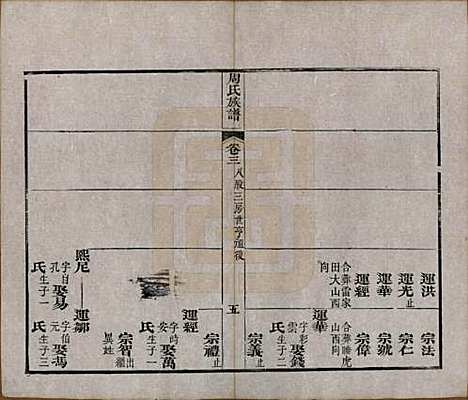 周氏族譜
卷三
五
運洪
宗法
運光止
宗仁
運華
宗虢
運經
宗偉
合葬雷家
田大山西
向
合葬睡虎
山西向
運華
字彩
雲
娶錢
氏生子二
宗義止
宗禮止
運經
字時
安
娶萬
氏生子一
宗智出繼
異姓
熙尼
運鄒
字自
孔
娶易
氏生子一
字伯
元
娶馮
氏生子三